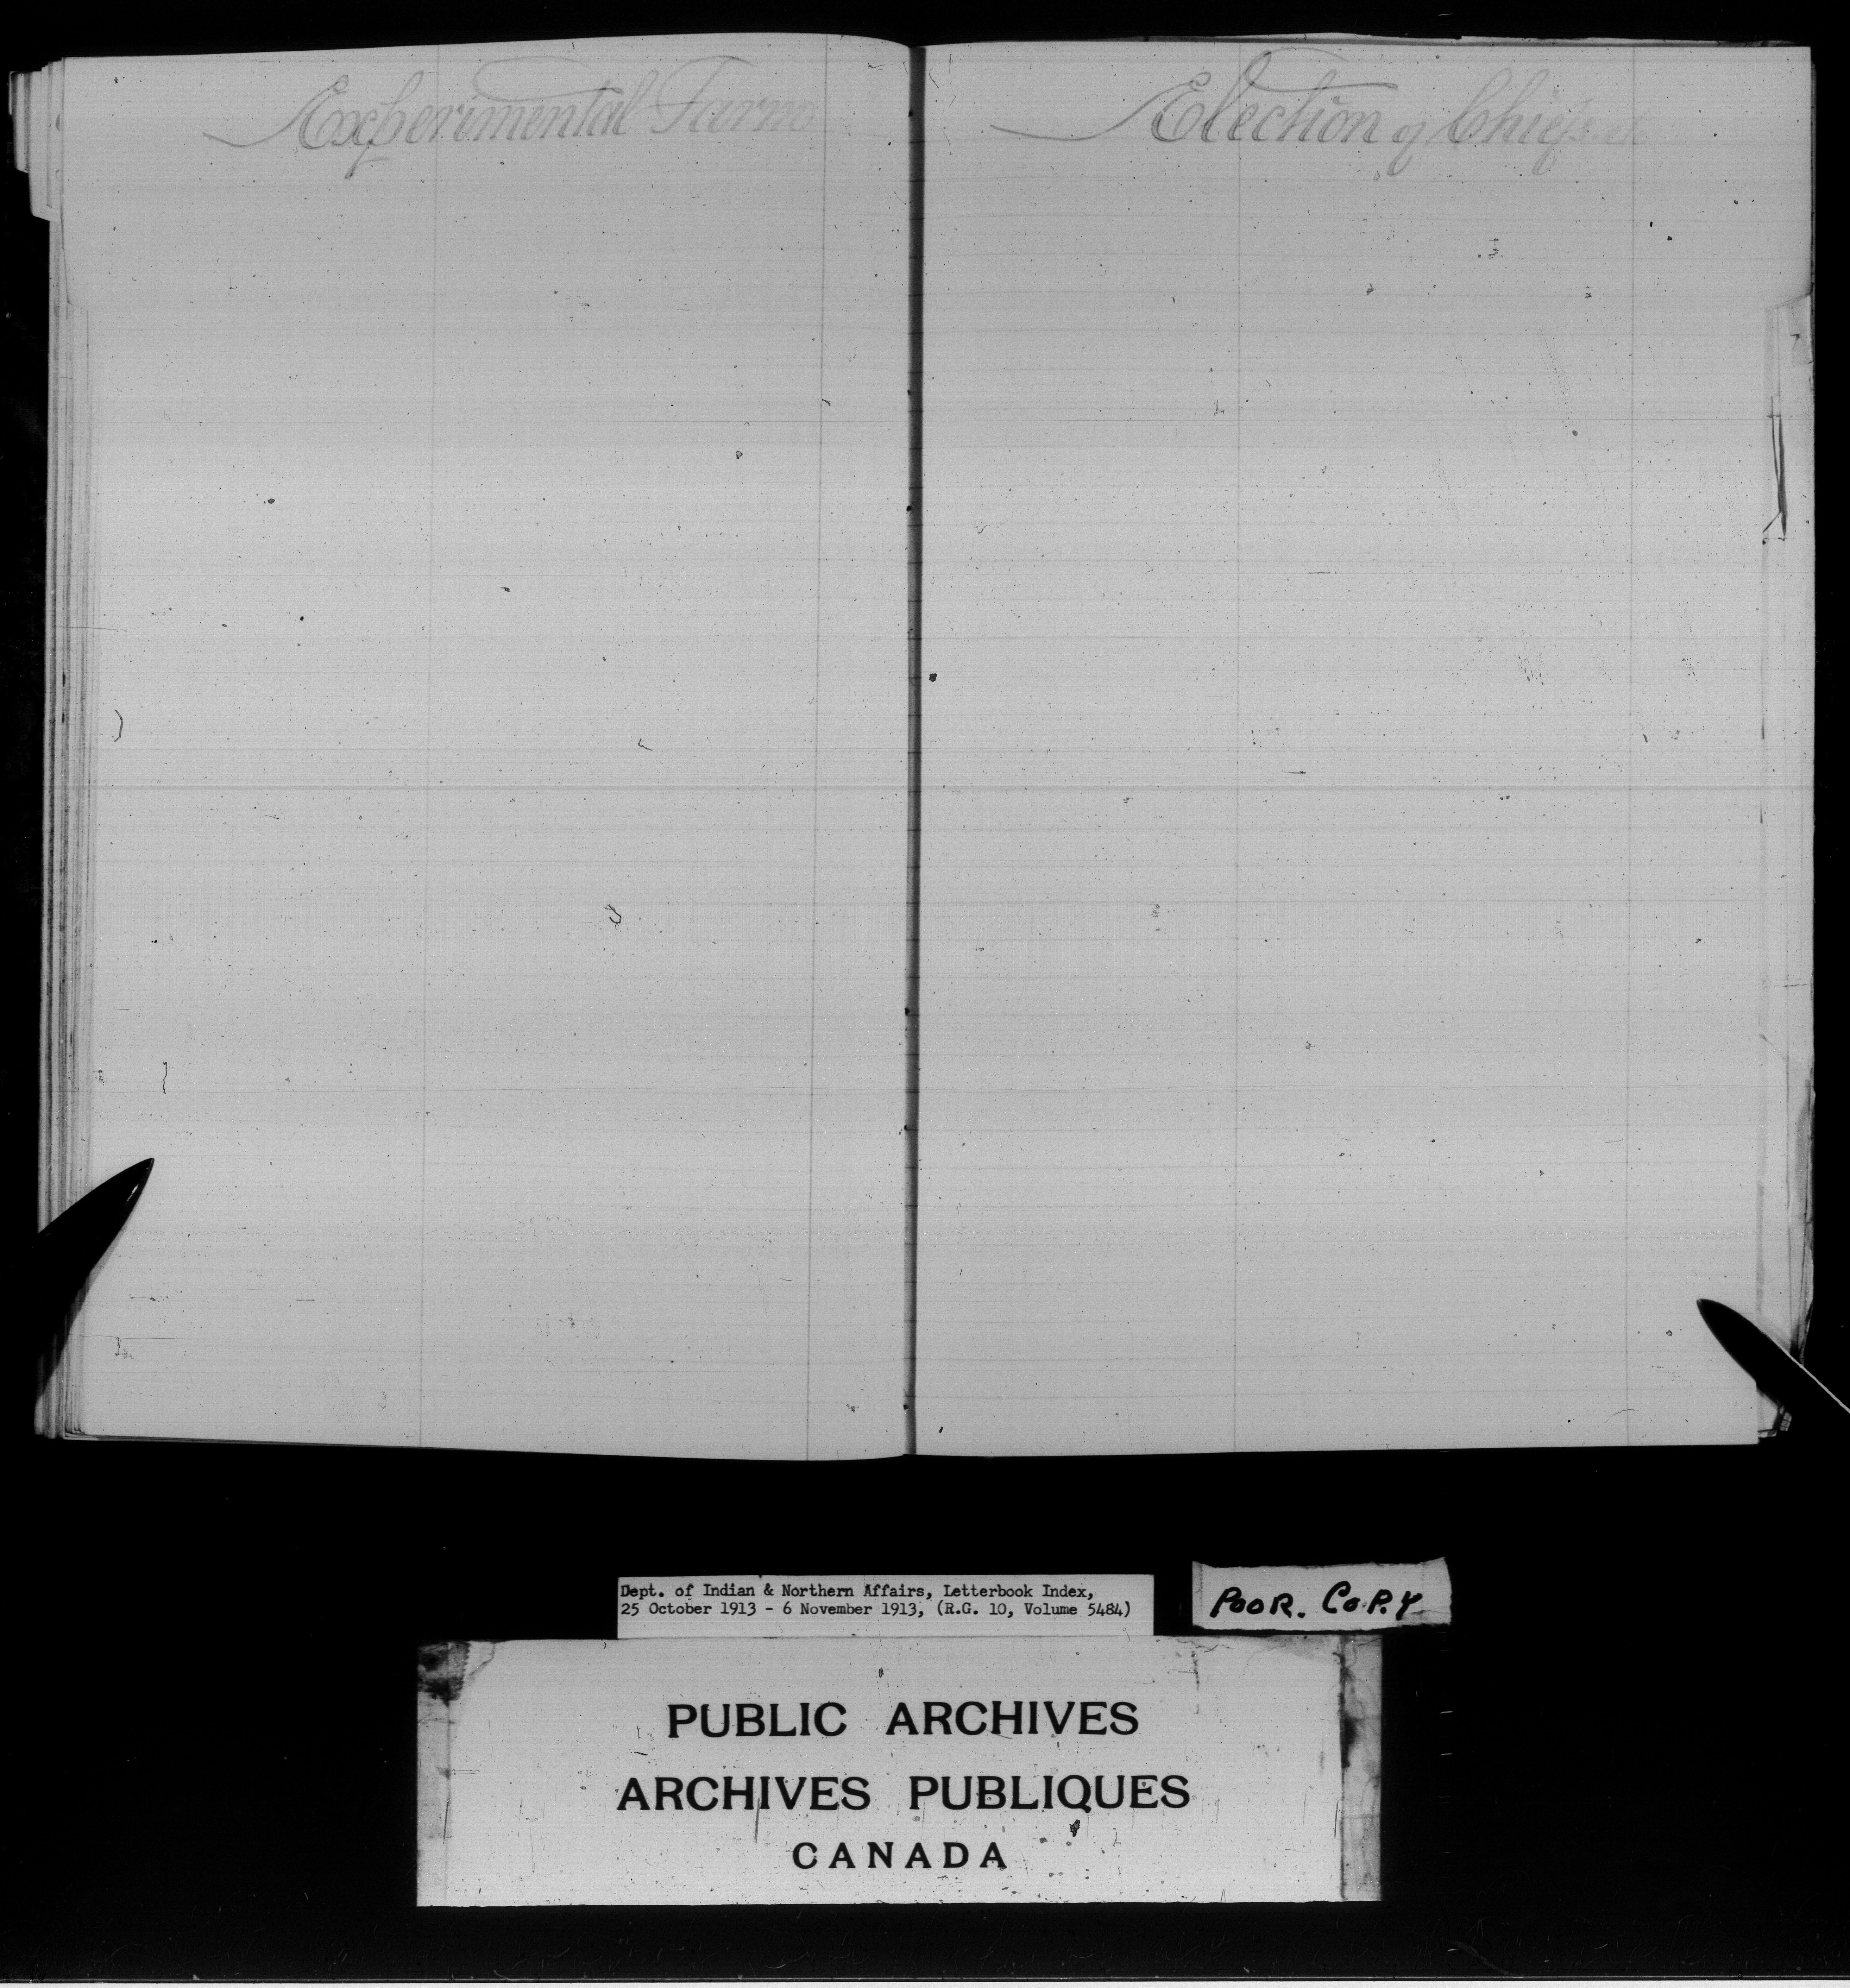 Experimental Farms
Election of Chiefs. etc
Dept. of Indian & Northern Affairs, Letterbook Index,
25 October 1913 - 6 November 1913, (R.G. 10, Volume 5484)
POOR. COPY
PUBLIC ARCHIVES
ARCHIVES PUBLIQUES
CANADA